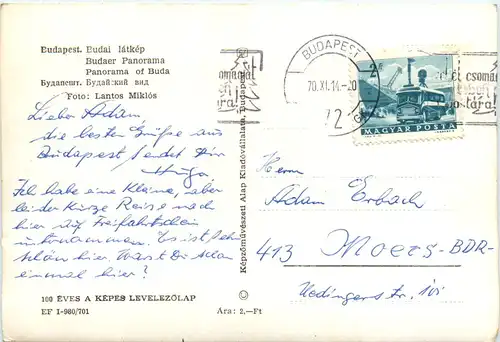 Budapest. Budai látkép
Budaer Panorama
Panorama of Buda
Будапешт. Будайский вид
Foto: Lantos Miklós
Lieber Adam,
die besten Grüße aus
Budapest sendet Dir
Hugo
Ich habe eine kleine, aber
leider kurze Reise nach
hier auf Freifahrtschein
unternommen. Es ist sehr
schön hier. Warst Du schon
einmal hier?
100 ÉVES A KÉPES LEVELEZŐLAP
EF I-980/701
Ára: 2.—Ft
Képzőművészeti Alap Kiadóvállalata, Budapest
BUDAPEST
70.XI.14.-20
72
2 Ft
MAGYAR POSTA
Herrn
Adam Erbach
413 Moers-BDR-
Uedingerstr. 101